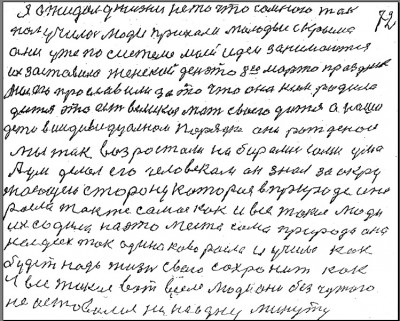 Я ожидал жизни не то что самого так
получилося люди приехали молодые с крыма
они уже по системе моей идеи занимаются
их заставила женский день это 8го марта праздник
мать прославили за то что она нам родила
дитя это есть великая мать своего дитя а наши
дети в индивидуальном порядке они рожденое
мы так возростали набирались сами ума
А ум делал его человеком он знал за окру
жающею сторону которая в природе и не
росла так же само как и все такие люди
их содила на это место сама природа она
на людях так одинаково росла и училась как
будет надо жизнь свою сохранить как
И все такие вот всем люди они без чужого
не оставался ни на одну минуту
72